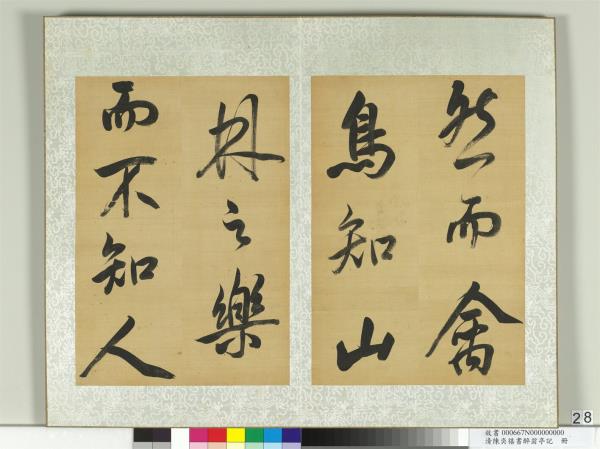 然而禽
鳥知山
林之樂
而不知人
28
故書000667N000000000
清陳奕禧書醉翁亭記 冊